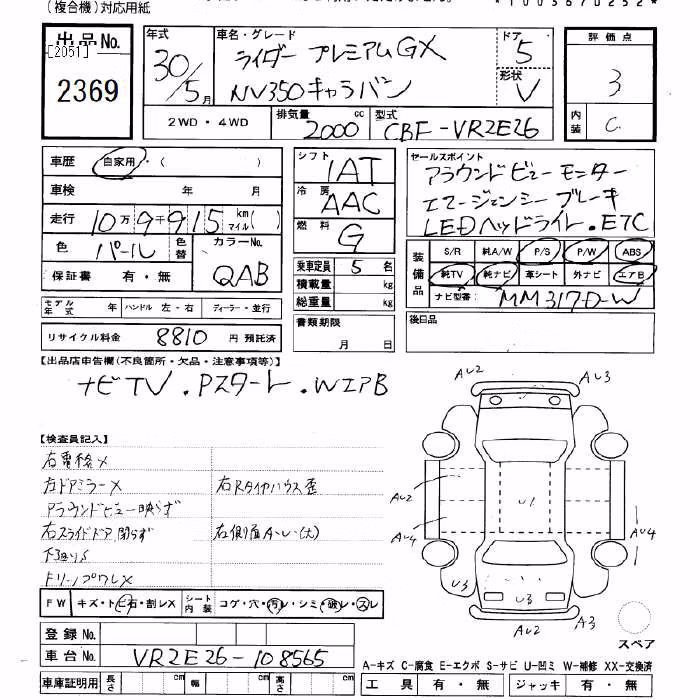 (複合機)対応用紙
出品No. [2051] 2369
年式 30/5月
車名・グレード ライダー プレミアムGX
NV350キャラバン
ドア 5
形状 V
評価点 3
内装 C
2WD・4WD
排気量 2000 cc
型式 CBF-VR2E26
車歴 自家用・( )
車検 年 月
走行 10万9千915 km マイル( )
色 パール 色替
カラーNo. QAB
保証書 有・無
シフト IAT
冷房 AAC
燃料 G
セールスポイント
アラウンドビューモニター
エマージェンシーブレーキ
LEDヘッドライト.ETC
乗車定員 5 名
積載量 kg
総重量 kg
装備品 S/R 純A/W P/S P/W ABS
純TV 純ナビ 革シート 外ナビ エアB
ナビ型番: MM317D-W
モデル年式 年 ハンドル 左・右 ディーラー・並行
リサイクル料金 8810 円 預託済
書類期限 月 日
後日品
【出品店申告欄(不良箇所・欠品・注意事項等)】
ナビTV.Pスタート.WエアB
【検査員記入】
右電格×
右ドアミラー×
右Rタイヤハウス歪
アラウンドビュー映らず
右スライドドア閉らず
下回りS
FW キズ・トビ石・割レX
シート内装 コゲ・穴・汚レ・シミ・破レ・スレ
AU2 AU3
AU2 U1 AU4
AU4
U3 U3
AU2 A3
スペア
登録No.
車台No. VR2E26-108565
車庫証明用 長さ cm 幅 cm 高さ cm
A-キズ C-腐食 E-エクボ S-サビ U-凹ミ W-補修 XX-交換済
工具 有・無 ジャッキ 有・無